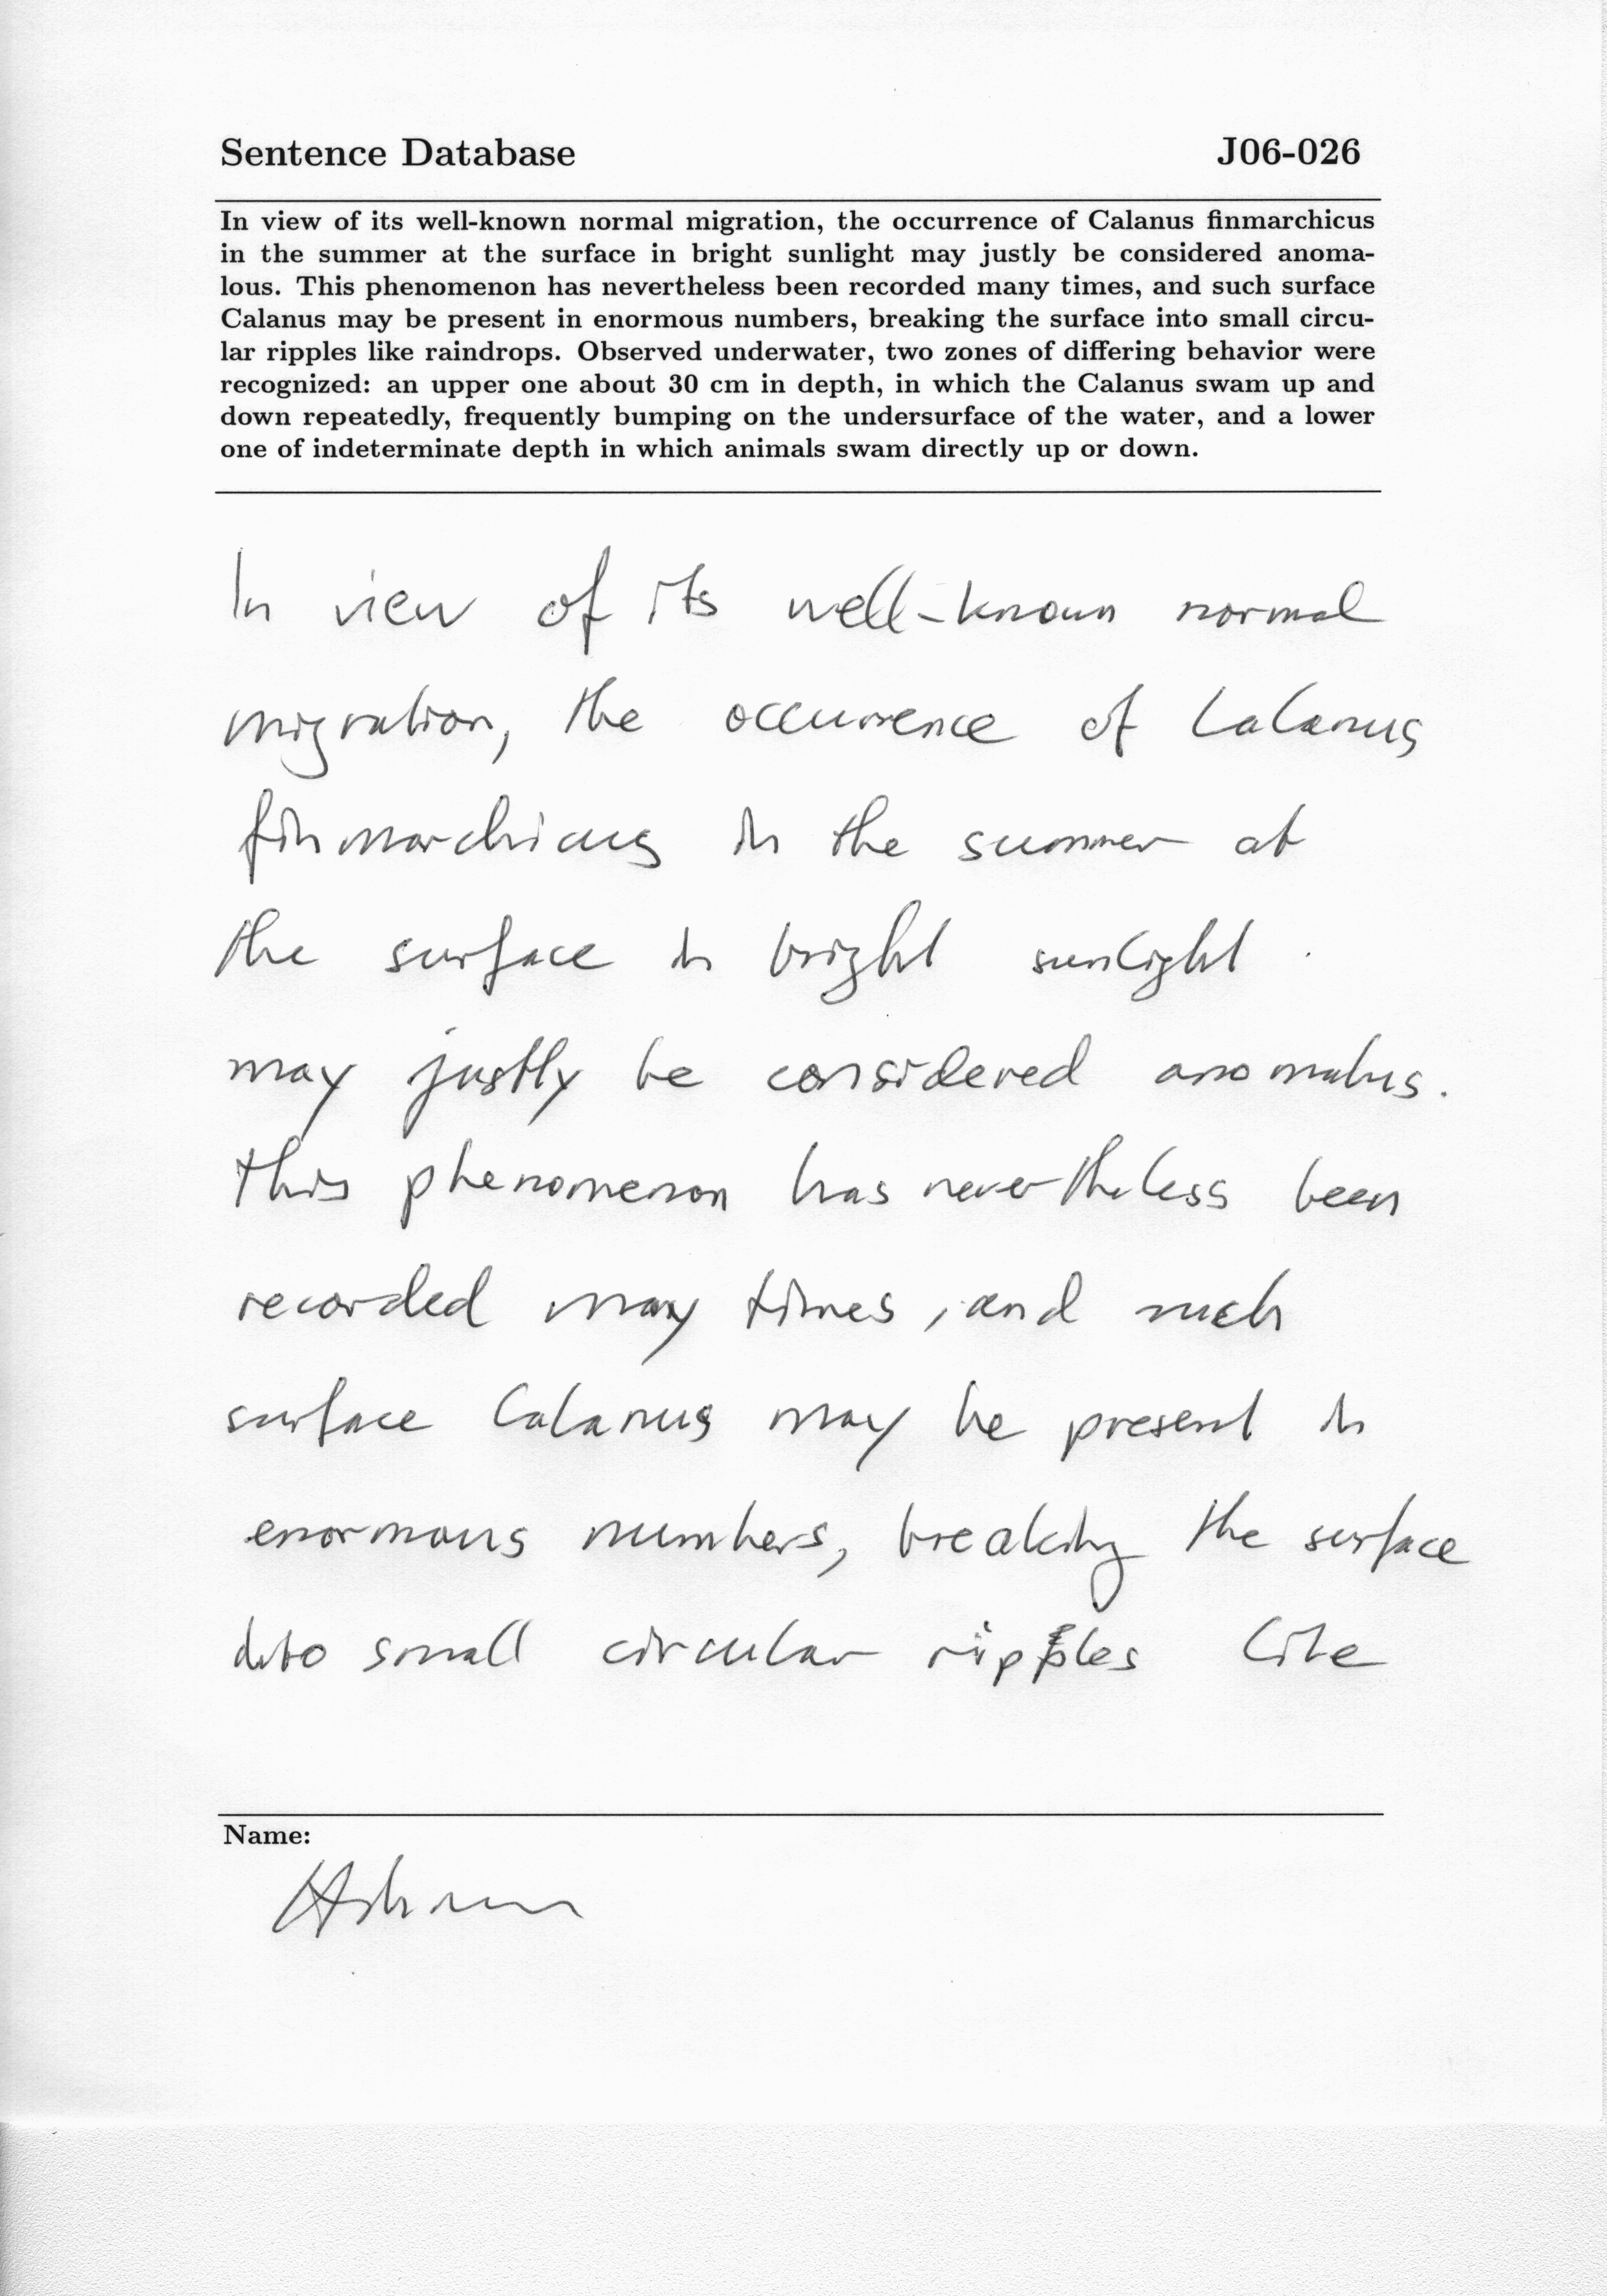 Sentence Database J06-026
In view of its well-known normal migration, the occurrence of Calanus finmarchicus
in the summer at the surface in bright sunlight may justly be considered anoma-
lous. This phenomenon has nevertheless been recorded many times, and such surface
Calanus may be present in enormous numbers, breaking the surface into small circu-
lar ripples like raindrops. Observed underwater, two zones of differing behavior were
recognized: an upper one about 30 cm in depth, in which the Calanus swam up and
down repeatedly, frequently bumping on the undersurface of the water, and a lower
one of indeterminate depth in which animals swam directly up or down.
In view of its well-known normal
migration, the occurrence of Calanus
finmarchicus in the summer at
the surface in bright sunlight
may justly be considered anomalus.
This phenomenon has nevertheless been
recorded many times, and such
surface Calanus may be present in
enormous numbers, breaking the surface
into small circular ripples like
Name: